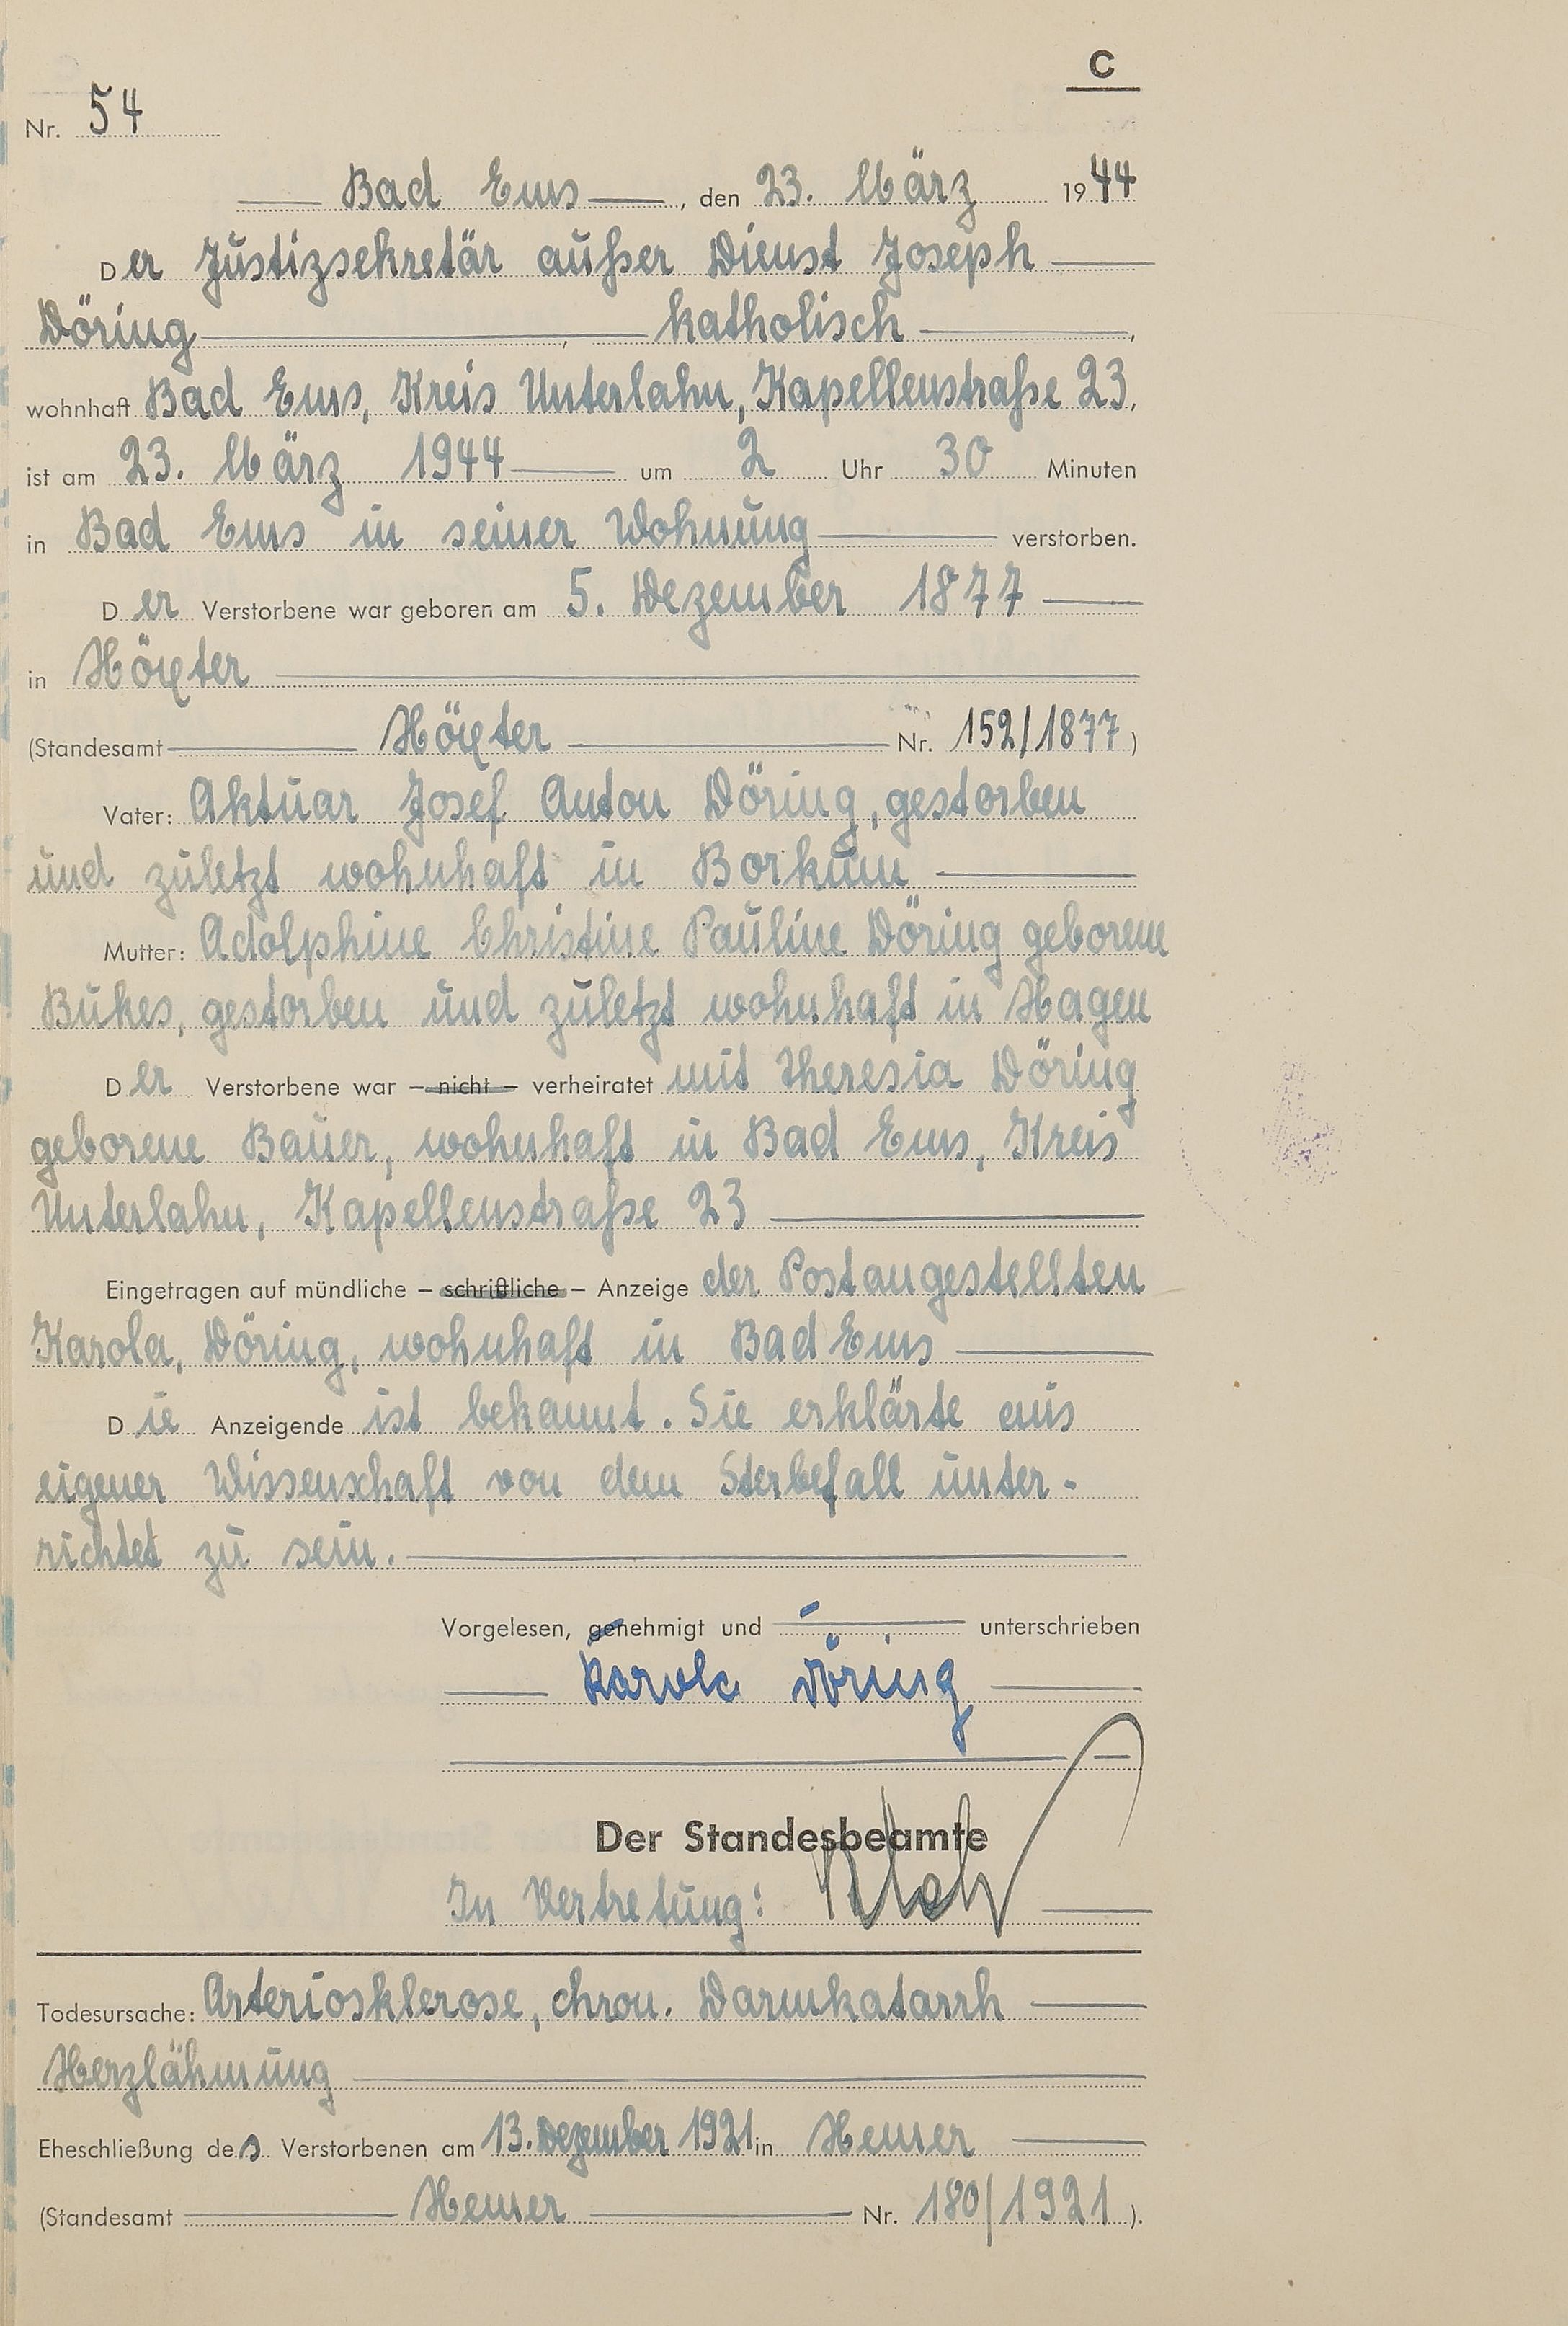 C
Nr. 54
Bad Ems, den 23. März 1944
Der Justizsekretär außer Dienst Joseph
Döring, katholisch,
wohnhaft Bad Ems, Kreis Unterlahn, Kapellenstraße 23,
ist am 23. März 1944 um 2 Uhr 30 Minuten
in Bad Ems in seiner Wohnung verstorben.
Der Verstorbene war geboren am 5. Dezember 1877
in Höxter
(Standesamt Höxter Nr. 152/1877)
Vater: Aktuar Josef Anton Döring, gestorben
und zuletzt wohnhaft in Borkum
Mutter: Adolphine Christine Pauline Döring geborene
Bukes, gestorben und zuletzt wohnhaft in Hagen
Der Verstorbene war – nicht – verheiratet mit Theresia Döring
geborene Bauer, wohnhaft in Bad Ems, Kreis
Unterlahn, Kapellenstraße 23
Eingetragen auf mündliche – schriftliche – Anzeige der Postangestellten
Karola, Döring, wohnhaft in Bad Ems
Die Anzeigende ist bekannt. Sie erklärte aus
eigener Wissenschaft von dem Sterbefall unter-
richtet zu sein.
Vorgelesen, genehmigt und unterschrieben
Karola Döring
Der Standesbeamte
In Vertretung:
Todesursache: Arteriosklerose, chron. Darmkatarrh
Herzlähmung
Eheschließung des Verstorbenen am 13. Dezember 1921 in Hemer
(Standesamt Hemer Nr. 180/1921).